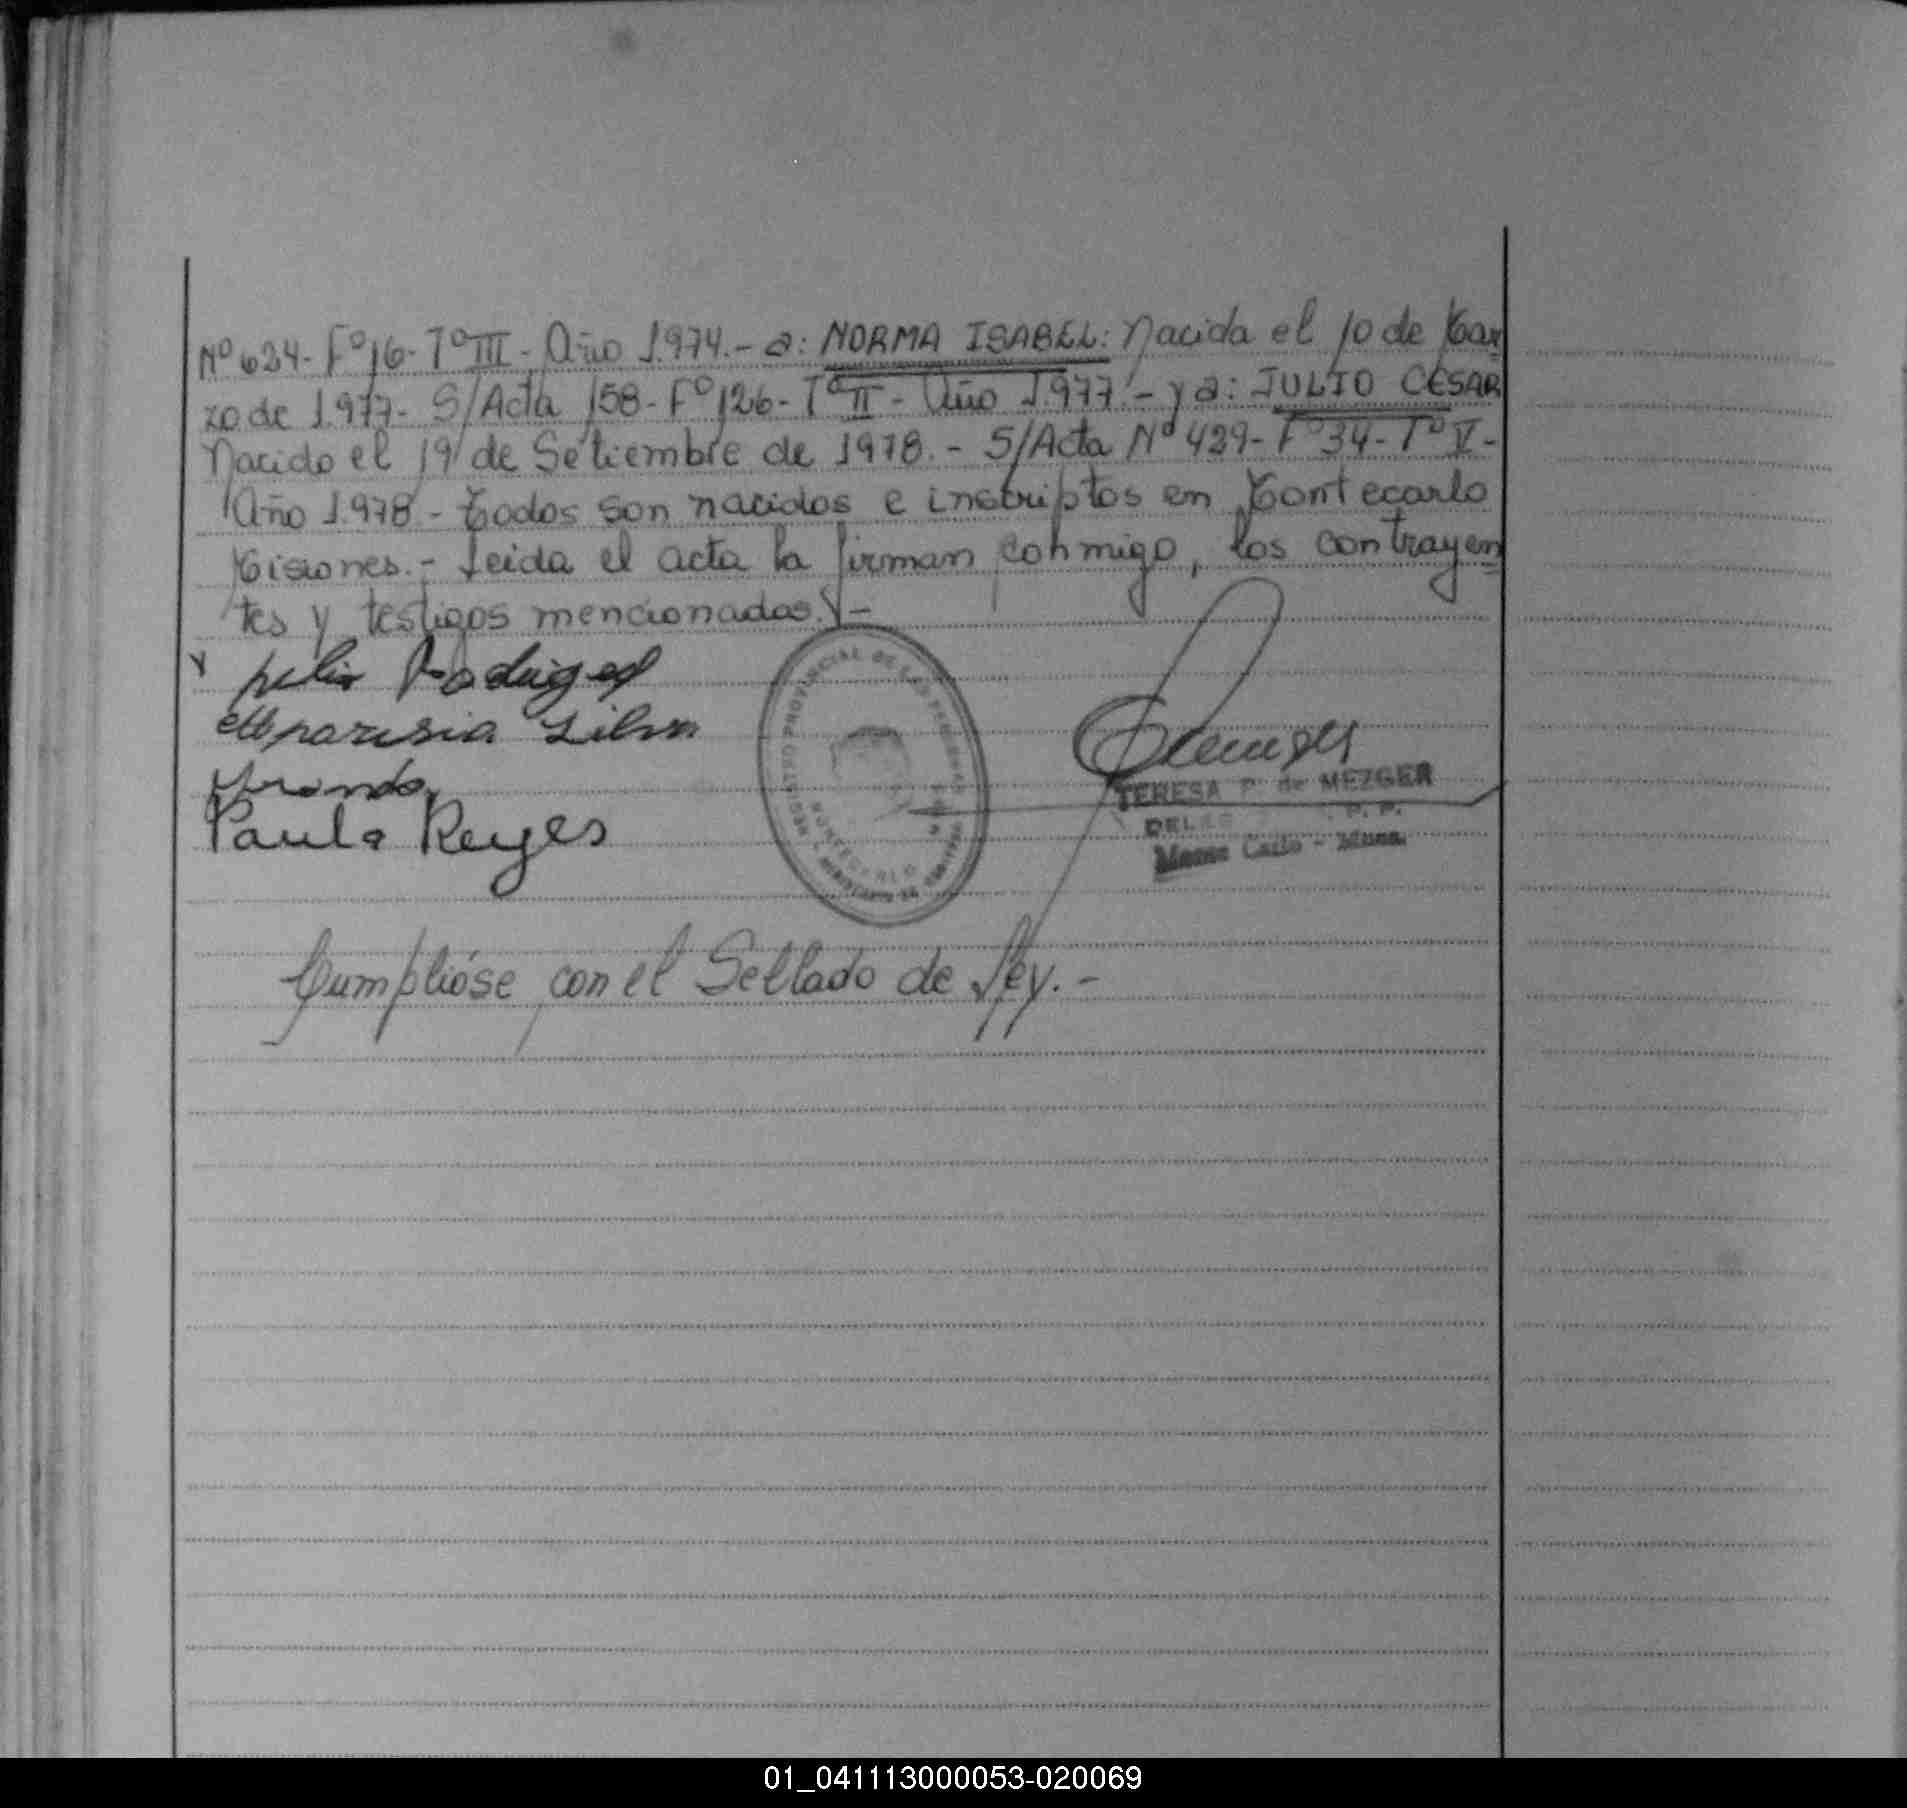 Nº 634- Fº 16- Tº III- Año 1.974.- a: NORMA ISABEL: Nacida el 10 de Mar-
zo de 1.977- S/Acta 158- Fº 126- Tº II- Año 1.977.- y a: JULIO CESAR
Nacido el 19 de Setiembre de 1978.- S/Acta Nº 429- Fº 34- Tº V-
Año 1.978- Todos son nacidos e inscriptos en Montecarlo
Misiones.- Leida el acta la firman conmigo, los contrayen
tes y testigos mencionados.-
Silva
Paula Reyes
REGISTRO PROVINCIAL DE LAS PERSONAS
MONTECARLO
TERESA P. de MEZGER
P. P.
Monte Carlo - Mnes.
Cumplióse con el Sellado de Ley.-
01_041113000053-020069